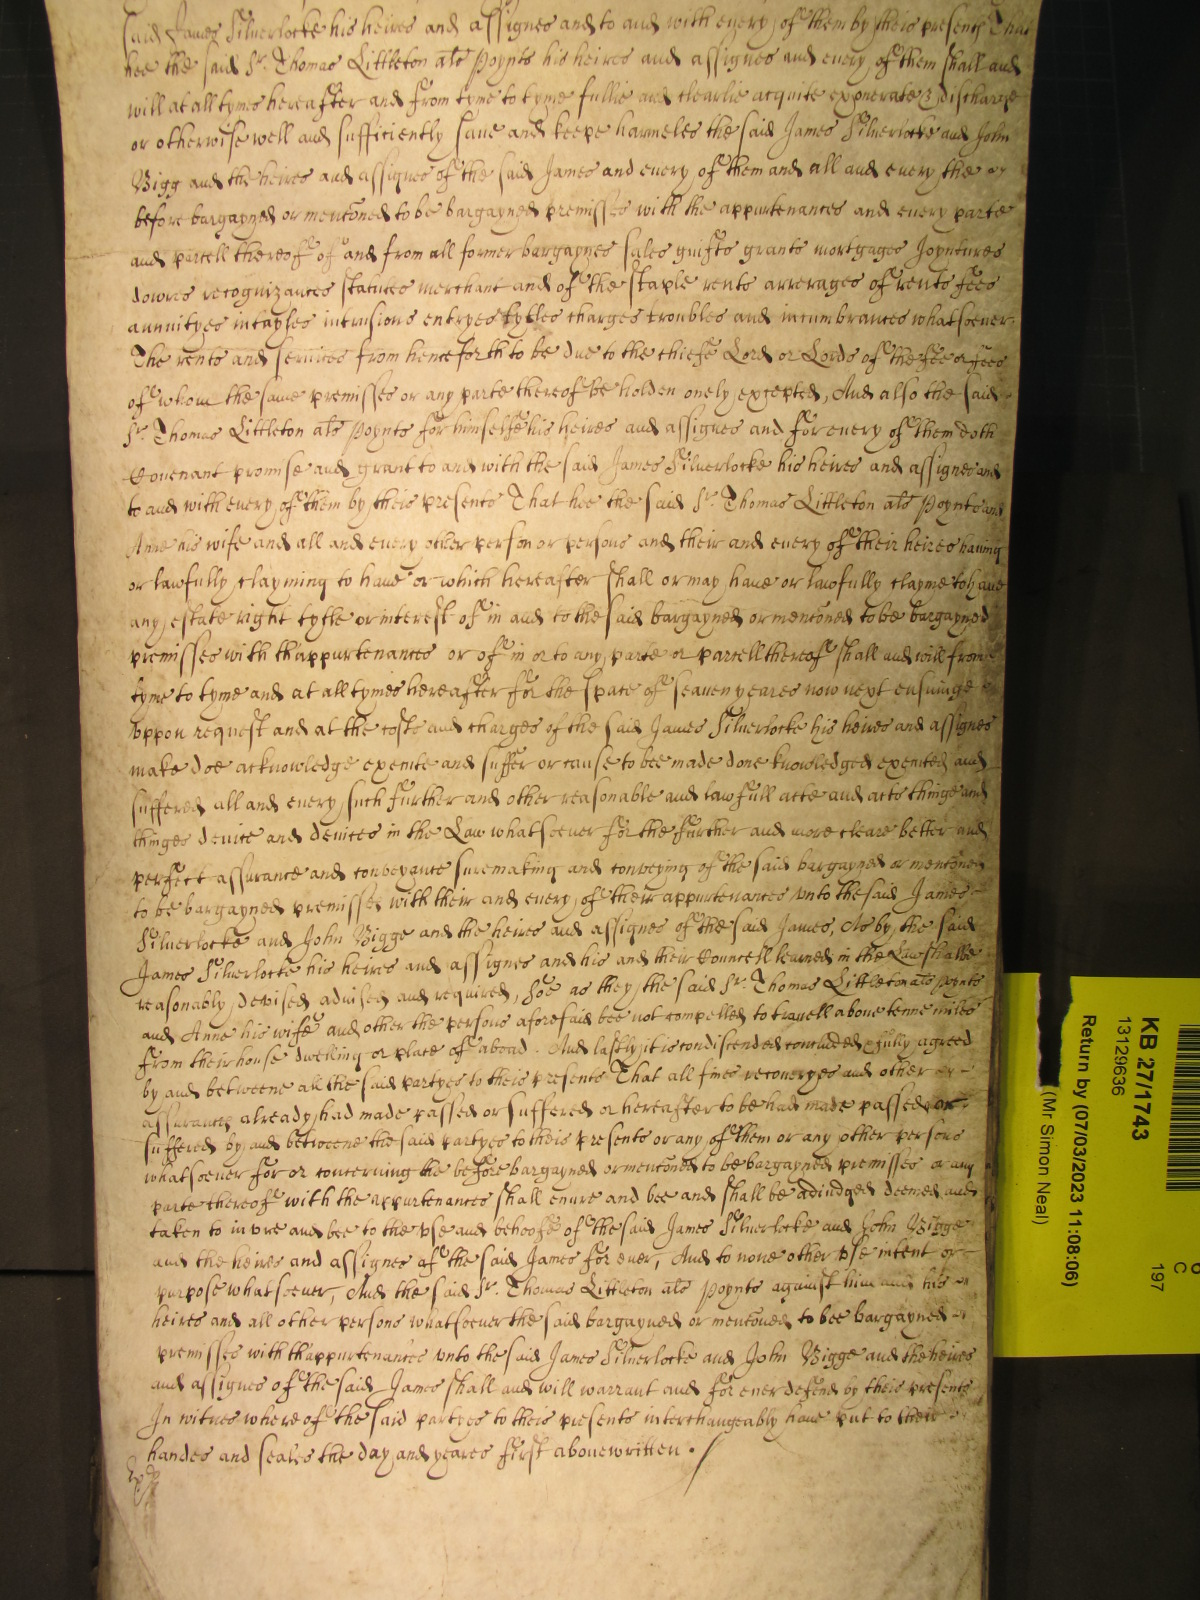 said James Silverlocke his heires and assignes and to and with every of them by theis presents That
hee the said Sr. Thomas Littleton als Poynts his heires and assignes and every of them shall and
will at all tymes hereafter and from tyme to tyme fullie and clearlie acquite exonerate & discharge
or otherwise well and sufficiently save and keepe harmeles the said James Silverlocke and John
Bigg and the heires and assignes of the said James and every of them and all and every the
before bargayned or mencõned to be bargayned premisses with the appurtenances and every parte
and parcell thereof of and from all former bargaynes sales guifts grants mortgages Joyntures
dowres recognizances statutes merchant and of the staple rents arrerages of rents fees
annuityes intayles intrusions entryes tytles charges troubles and incumbrances whatsoever
The rents and services from henceforth to be due to the chiefe Lord or Lords of the fee or fees
of whom the same premisses or any parte thereof be holden onely excepted, And also the said
Sr. Thomas Littleton als Poynts for himselfe his heires and assignes and for every of them doth
Covenant promise and grant to and with the said James Silverlocke his heires and assignes and
to and with every of them by theis presents That hee the said Sr. Thomas Littleton als Poynts and
Anne his wife and all and every other person or persons and their and every of their heires having
or lawfully clayming to have or which hereafter shall or may have or lawfully clayme to have
any estate right tytle or interest of in and to the said bargayned or mencõned to be bargayned
premisses with thappurtenances or of in or to any parte or parcell thereof shall and will from
tyme to tyme and at all tymes hereafter for the space of seaven yeares now next ensuinge
uppon request and at the costs and charges of the said James Silverlocke his heires and assignes
make doe acknowledge execute and suffer or cause to bee made done knowledged executed and
suffered all and every such further and other reasonable and lawfull acte and acts thinge and
thinges device and devices in the Law whatsoever for the further and more cleare better and
perfect assurance and conveyance suremaking and conveying of the said bargayned or mencõned
to be bargayned premisses with their and every of their appurtenances vnto the said James
Silverlocke and John Bigge and the heires and assignes of the said James, As by the said
James Silverlocke his heires and assignes and his and their Councell learned in the Law shalbe
reasonably devised advised and required, soe as they the said Sr. Thomas Littleton als Poynts
and Anne his wife and other the persons aforesaid bee not compelled to travell above tenne miles
from their house dwelling or place of aboad. And lastly it is condiscended concluded & fully agreed
by and betweene all the said partyes to theis presents That all fines recoveryes and other
assurances already had made passed or suffered or hereafter to be had made passed or
suffered by and betweene the said partyes to theis presents or any of them or any other persons
whatsoever for or concerning the before bargayned or mencõned to be bargayned premisses or any
parte thereof with the appurtenances shall enure and bee and shall be adiudged deemed and
taken to inure and bee to the vse and behoofe of the said James Silverlocke and John Bigge
and the heires and assignes of the said James for ever, And to none other vse intent or
purpose whatsoever, And the said Sr. Thomas Littleton als Poynts against him and his
heires and all other persons whatsoever the said bargayned or mencõned to bee bargayned
premisses with thappurtenances vnto the said James Silverlocke and John Bigge and the heires
and assignes of the said James shall and will warrant and for ever defend by theis presents
In witnes whereof the said partyes to theis presents interchangeably have put to their
handes and seales the day and yeares first above written.
KB 27/1743
13129636
Return by (07/03/2023 11:08:06)
(Mr Simon Neal)
C
197